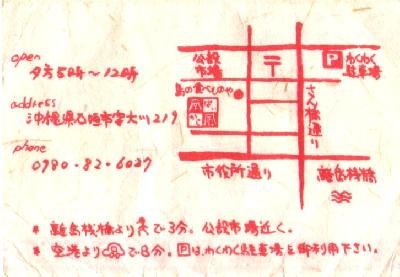 open
夕方5時～12時
address
沖縄県石垣市字大川219
phone
0980-82-6027
公設
市場
〒
P わくわく
駐車場
島の食べものや
さん橋通り
市役所通り
離島桟橋
* 離島桟橋より で3分。公設市場近く。
* 空港より で8分。Pはわくわく駐車場を御利用下さい。